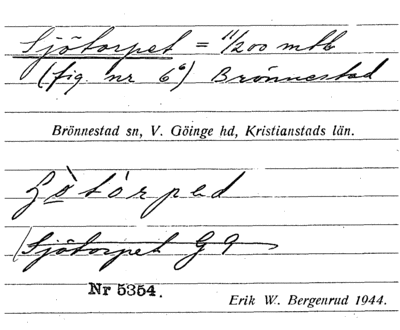 Sjötorpet = 11/200 mtl
(fig. nr 6⁶) Brönnestad
Brönnestad sn, V. Göinge hd, Kristianstads län.
(Sjötorpet G 9
Nr 5354.
Erik W. Bergenrud 1944.